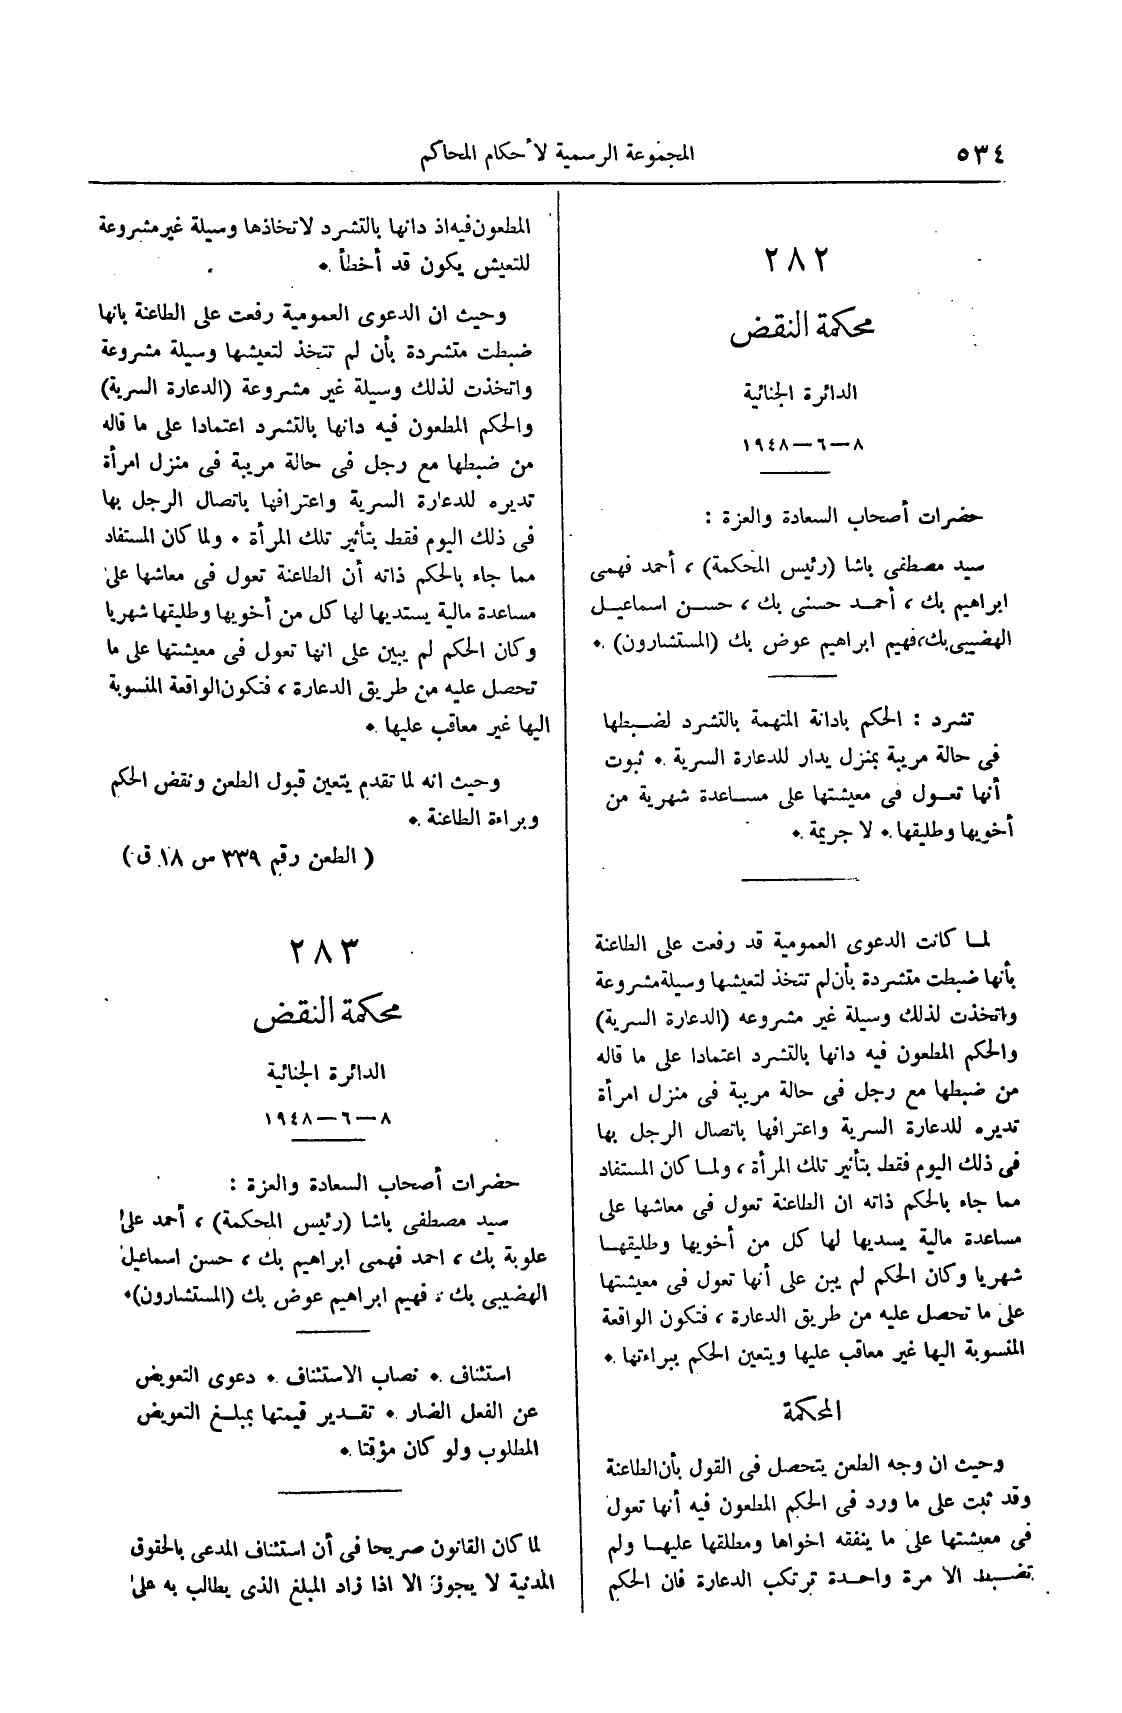 ٥٣٤
المجموعة الرسمية لأحكام المحاكم
٢٨٢
محكمة النقض
الدائرة الجنائية
٨ – ٦ – ١٩٤٨
حضرات أصحاب السعادة والعزة :
سيد مصطفى باشا (رئيس المحكمة) ، أحمد فهمى
ابراهيم بك ، أحمد حسنى بك ، حسن اسماعيل
الهضيبى بك، فهيم ابراهيم عوض بك (المستشارون) .
تشرد : الحكم بادانة المتهمة بالتشرد لضبطها
فى حالة مريبة بمنزل يدار للدعارة السرية . ثبوت
أنها تعول فى معيشتها على مساعدة شهرية من
أخويها وطليقها . لا جريمة .
لما كانت الدعوى العمومية قد رفعت على الطاعنة
بأنها ضبطت متشردة بأن لم تتخذ لتعيشها وسيلة مشروعة
واتخذت لذلك وسيلة غير مشروعه (الدعارة السرية)
والحكم المطعون فيه دانها بالتشرد اعتمادا على ما قاله
من ضبطها مع رجل فى حالة مريبة فى منزل امرأة
تديره للدعارة السرية واعترافها باتصال الرجل بها
فى ذلك اليوم فقط بتأثير تلك المرأة ، ولما كان المستفاد
مما جاء بالحكم ذاته ان الطاعنة تعول فى معاشها على
مساعدة مالية يسديها لها كل من أخويها وطليقها
شهريا وكان الحكم لم يبن على أنها تعول فى معيشتها
على ما تحصل عليه من طريق الدعارة ، فتكون الواقعة
المنسوبة اليها غير معاقب عليها ويتعين الحكم ببراءتها .
المحكمة
وحيث ان وجه الطعن يتحصل فى القول بأن الطاعنة
وقد ثبت على ما ورد فى الحكم المطعون فيه أنها تعول
فى معيشتها على ما ينفقه اخواها ومطلقها عليها ولم
تضبط الا مرة واحدة ترتكب الدعارة فان الحكم
المطعون فيه اذ دانها بالتشرد لاتخاذها وسيلة غير مشروعة
للتعيش يكون قد أخطأ .
وحيث ان الدعوى العمومية رفعت على الطاعنة بانها
ضبطت متشردة بأن لم تتخذ لتعيشها وسيلة مشروعة
واتخذت لذلك وسيلة غير مشروعة (الدعارة السرية)
والحكم المطعون فيه دانها بالتشرد اعتمادا على ما قاله
من ضبطها مع رجل فى حالة مريبة فى منزل امرأة
تديره للدعارة السرية واعترافها باتصال الرجل بها
فى ذلك اليوم فقط بتأثير تلك المرأة . ولما كان المستفاد
مما جاء بالحكم ذاته أن الطاعنة تعول فى معاشها على
مساعدة مالية يستديها لها كل من أخويها وطليقها شهريا
وكان الحكم لم يبين على انها تعول فى معيشتها على ما
تحصل عليه من طريق الدعارة ، فتكون الواقعة المنسوبة
اليها غير معاقب عليها .
وحيث انه لما تقدم يتعين قبول الطعن ونقض الحكم
وبراءة الطاعنة .
( الطعن رقم ٣٣٩ س ١٨ ق )
٢٨٣
محكمة النقض
الدائرة الجنائية
٨ – ٦ – ١٩٤٨
حضرات أصحاب السعادة والعزة :
سيد مصطفى باشا (رئيس المحكمة) ، أحمد على
علوبة بك ، احمد فهمى ابراهيم بك ، حسن اسماعيل
الهضيبى بك ، فهيم ابراهيم عوض بك (المستشارون).
استئناف . نصاب الاستئناف . دعوى التعويض
عن الفعل الضار . تقدير قيمتها بمبلغ التعويض
المطلوب ولو كان مؤقتا .
لما كان القانون صريحا فى أن استئناف المدعى بالحقوق
المدنية لا يجوز الا اذا زاد المبلغ الذى يطالب به على